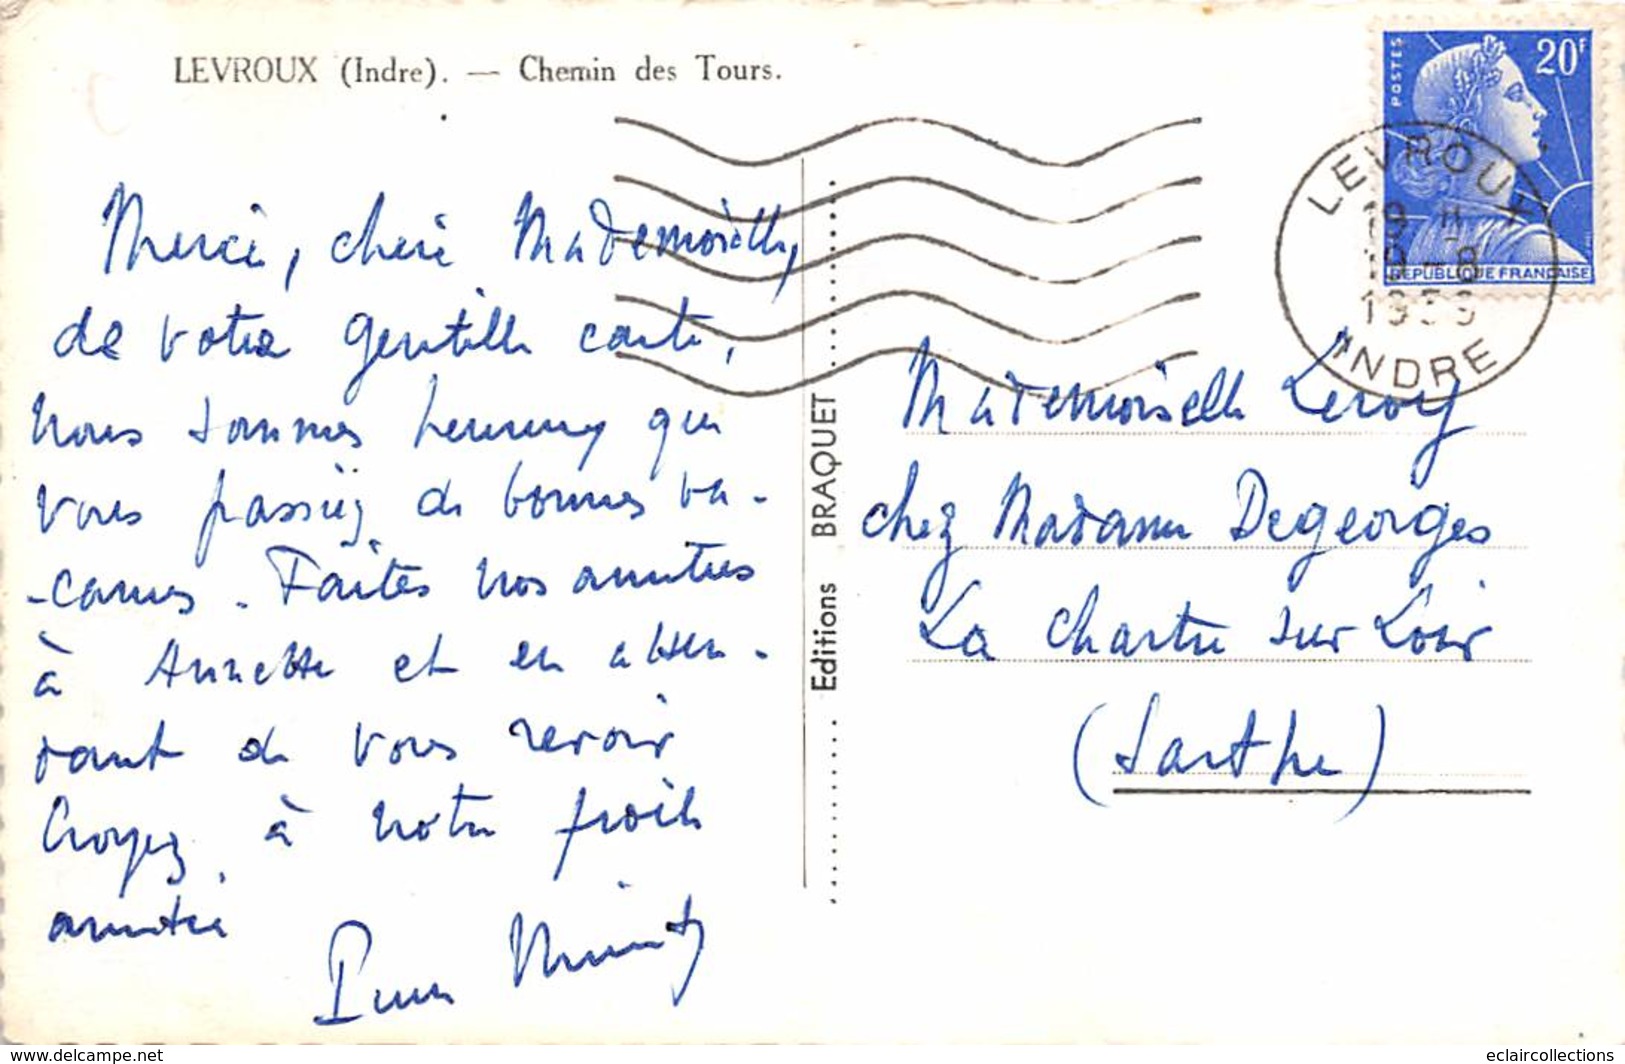 LEVROUX (Indre). — Chemin des Tours.
POSTES
20F
REPUBLIQUE FRANÇAISE
LEVROUX
19 H
19 - 8
1959
INDRE
Merci, chère Mademoiselle,
de votre gentille carte,
nous sommes heureux que
vous passiez de bonnes va-
-cances. Faites nos amitiés
à Annette et en atten-
dant de vous revoir
Croyez, à notre
amitié
Editions BRAQUET
Mademoiselle Leroy
chez Madame Degeorges
La Chartre sur Loir
(Sarthe)
www.delcampe.net
eclaircollections